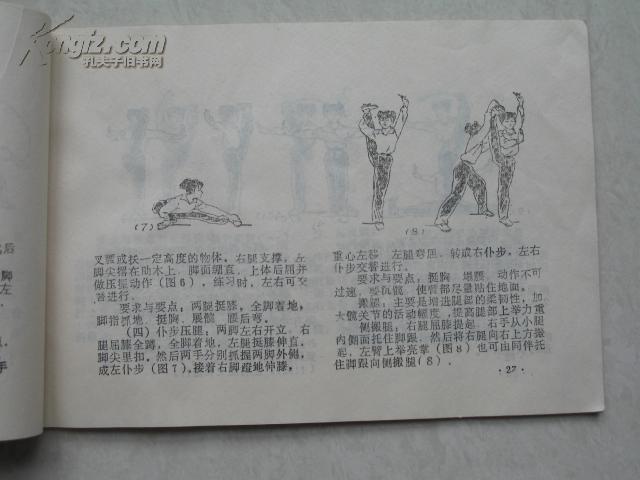 Kongfz.com
孔夫子旧书网
(7)
(8)
叉腰或扶一定高度的物体，右腿支撑，左
脚尖搭在肋木上，脚面绷直，上体后屈并
做压振动作（图6）。练习时，左右可交
替进行。
要求与要点：两腿挺膝，全脚着地，
脚指抓地，挺胸、展髋、腰后弯。
（四）仆步压腿：两脚左右开立，右
腿屈膝全蹲，全脚着地、左腿挺膝伸直，
脚尖里扣。然后两手分别抓握两脚外侧，
成左仆步（图7），接着右脚蹬地伸膝，
重心左移，左腿弯屈，转成右仆步，左右
仆步交替进行。
要求与要点：挺胸、塌腰，动作不可
过速，要沉髋，使臀部尽量贴住地面。
搬腿，主要是增进腿部的柔韧性，加
大髋关节的活动幅度，提高腿部上举力重
侧搬腿：右腿屈膝提起，右手从小腿
内侧面托住脚跟，然后将右腿向右上方搬
起，左臂上举亮掌（图8）也可由同伴托
住脚跟向侧搬腿（8）。
·27·
然后
脚
左
手